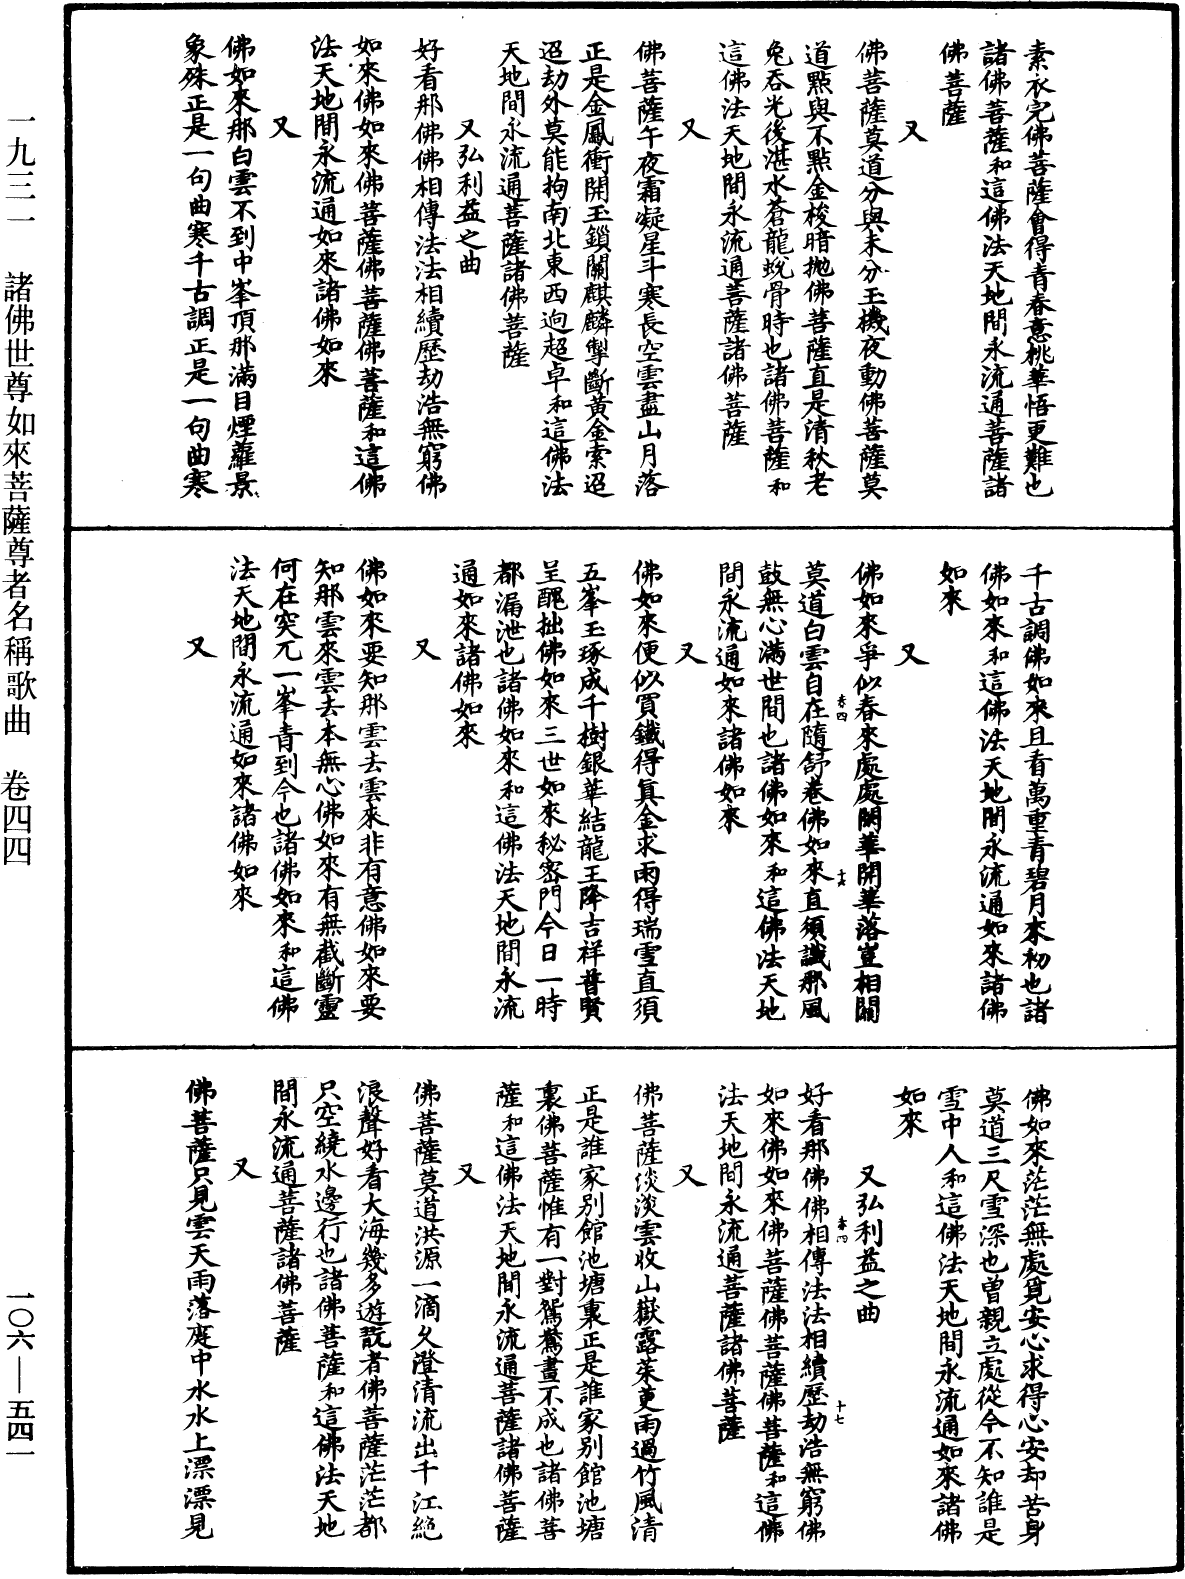 素衣完佛菩薩會得青春意桃華悟更難也
諸佛菩薩和這佛法天地間永流通菩薩諸
佛菩薩
又
佛菩薩莫道分與未分玉機夜動佛菩薩莫
道點與不點金梭暗拋佛菩薩直是清秋老
兔吞光後湛水蒼龍蛻骨時也諸佛菩薩和
這佛法天地間永流通菩薩諸佛菩薩
又
佛菩薩午夜霜凝星斗寒長空雲盡山月落
正是金鳳衝開玉鎖關麒麟掣斷黃金索迢
迢劫外莫能拘南北東西逈超卓和這佛法
天地間永流通菩薩諸佛菩薩
又弘利益之曲
好看那佛佛相傳法法相續歷劫浩無窮佛
如來佛如來佛菩薩佛菩薩佛菩薩和這佛
法天地間永流通如來諸佛如來
又
佛如來那白雲不到中峯頂那滿目煙蘿景
象殊正是一句曲寒千古調正是一句曲寒
千古調佛如來且看萬重青碧月來初也諸
佛如來和這佛法天地間永流通如來諸佛
如來
又
佛如來爭似春來處處開華開華落豈相關
莫道白雲自在隨舒卷佛如來直須識那風
鼓無心滿世間也諸佛如來和這佛法天地
間永流通如來諸佛如來
又
佛如來便似買鐵得真金求雨得瑞雪直須
五峯玉琢成千樹銀華結龍王降吉祥普賢
呈醜拙佛如來三世如來秘密門今日一時
都漏泄也諸佛如來和這佛法天地間永流
通如來諸佛如來
又
佛如來要知那雲去雲來非有意佛如來要
知那雲來雲去本無心佛如來有無截斷靈
何在突兀一峯青到今也諸佛如來和這佛
法天地間永流通如來諸佛如來
又
佛如來茫茫無處覓安心求得心安却苦身
莫道三尺雪深也曾親立處從今不知誰是
雪中人和這佛法天地間永流通如來諸佛
如來
又弘利益之曲
好看那佛佛相傳法法相續歷劫浩無窮佛
如來佛如來佛菩薩佛菩薩佛菩薩和這佛
法天地間永流通菩薩諸佛菩薩
又
佛菩薩淡淡雲收山嶽露茱萸雨過竹風清
正是誰家別館池塘裏正是誰家別館池塘
裏佛菩薩惟有一對鴛鴦畫不成也諸佛菩
薩和這佛法天地間永流通菩薩諸佛菩薩
又
佛菩薩莫道洪源一滴久澄清流出千江絕
浪聲好看大海幾多遊翫者佛菩薩茫茫都
只空繞水邊行也諸佛菩薩和這佛法天地
間永流通菩薩諸佛菩薩
又
佛菩薩只見雲天雨落庭中水水上漂漂見
卷四
十六
卷四
十七
一九三一　諸佛世尊如來菩薩尊者名稱歌曲　卷四四
一〇六—五四一